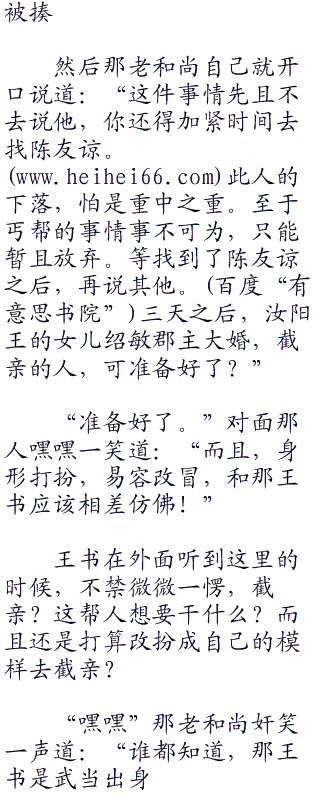 被揍
然后那老和尚自己就开
口说道：“这件事情先且不
去说他，你还得加紧时间去
找陈友谅。
(www.heihei66.com)此人的
下落，怕是重中之重。至于
丐帮的事情事不可为，只能
暂且放弃。等找到了陈友谅
之后，再说其他。(百度“有
意思书院”)三天之后，汝阳
王的女儿绍敏郡主大婚，截
亲的人，可准备好了？”
“准备好了。”对面那
人嘿嘿一笑道：“而且，身
形打扮，易容改冒，和那王
书应该相差仿佛！”
王书在外面听到这里的
时候，不禁微微一愣，截
亲？这帮人想要干什么？而
且还是打算改扮成自己的模
样去截亲？
“嘿嘿”那老和尚奸笑
一声道：“谁都知道，那王
书是武当出身